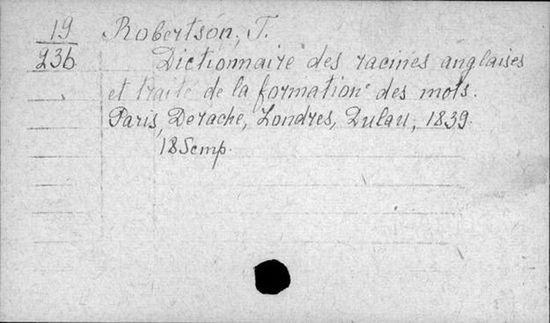 19 Robertson, T.
236 Dictionnaire des racines anglaises
et traité de la formation des mots.
Paris, Derache, Londres, Dulau, 1839.
185emp.